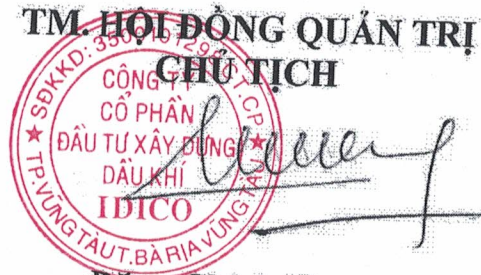 TM. HỘI ĐỒNG QUẢN TRỊ
CHỦ TỊCH
CÔNG TY
CỔ PHẦN
ĐẦU TƯ XÂY DỰNG
DẦU KHÍ
IDICO
TP.VŨNG TÀU T.BÀ RỊA VŨNG TÀU